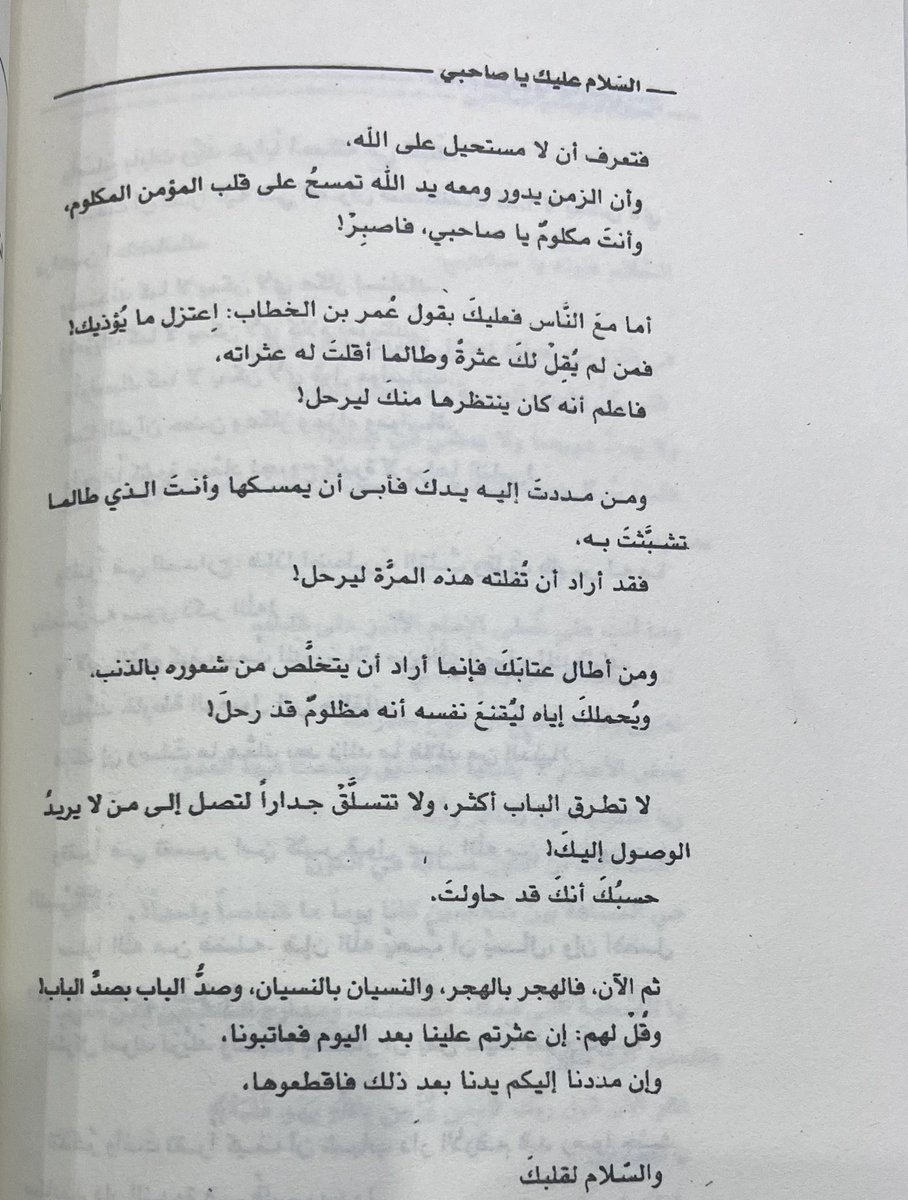 السّلام عليك يا صاحبي
فتعرف أن لا مستحيل على الله،
وأن الزمن يدور ومعه يد الله تمسحُ على قلب المؤمن المكلوم،
وأنتَ مكلومٌ يا صاحبي، فاصبِرْ!
أما معَ النَّاس فعليكَ بقول عُمر بن الخطاب: اِعتزل ما يُؤذيك!
فمن لم يُقِلْ لكَ عثرةً وطالما أقلتَ له عثراته،
فاعلم أنه كان ينتظرها منكَ ليرحل!
ومن مددتَ إليه يدكَ فأبى أن يمسكها وأنتَ الذي طالما
تشبَّثتَ به،
فقد أراد أن تُفلته هذه المرَّة ليرحل!
ومن أطال عتابَكَ فإنما أراد أن يتخلَّص من شعوره بالذنب،
ويُحملكَ إياه ليُقنعَ نفسه أنه مظلومٌ قد رحلَ!
لا تطرق الباب أكثر، ولا تتسلَّقْ جداراً لتصل إلى من لا يريدُ
الوصول إليكَ!
حسبُكَ أنكَ قد حاولتَ.
ثم الآن، فالهجر بالهجر، والنسيان بالنسيان، وصدُّ الباب بصدِّ الباب!
وقُلْ لهم: إن عثرتم علينا بعد اليوم فعاتبونا،
وإن مددنا إليكم يدنا بعد ذلك فاقطعوها،
والسّلام لقلبكَ